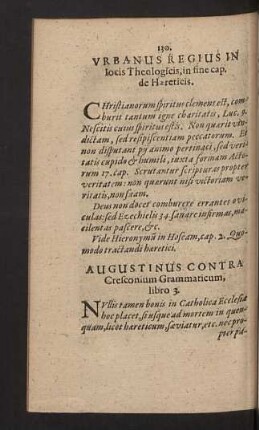 130.
VRBANUS REGIUS IN
locis Theologicis, in fine cap.
de Hæreticis.
CHristianorum spiritus clemens est, com-
burit tantum igne charitatis, Luc. 9.
Nescitis cuius spiritus estis. Non quærit vin-
dictam, sed respiscentiam peccatorum. Et
non disputant pij animo pertinaci, sed veri-
tatis cupido & humili, iuxta formam Acto-
rum 17. cap. Scrutantur scripturas propter
veritatem: non quærunt suis victoriam ve-
ritatis, non suam.
Deus non docet comburere errantes ovi-
culas: sed Ezechielis 34. sanare infirmas, ma-
cilentas pascere, &c.
Vide Hieronymū in Hoseam, cap. 2. Quo-
modo tractandi hæretici.
AUGUSTINUS CONTRA
Cresconium Grammaticum,
libro 3.
NVllis tamen bonis in Catholica Ecclesia
hoc placet, si usque ad mortem in quen-
quam, licet hæreticum, sæviatur, etc. nec pro-
pter pa-